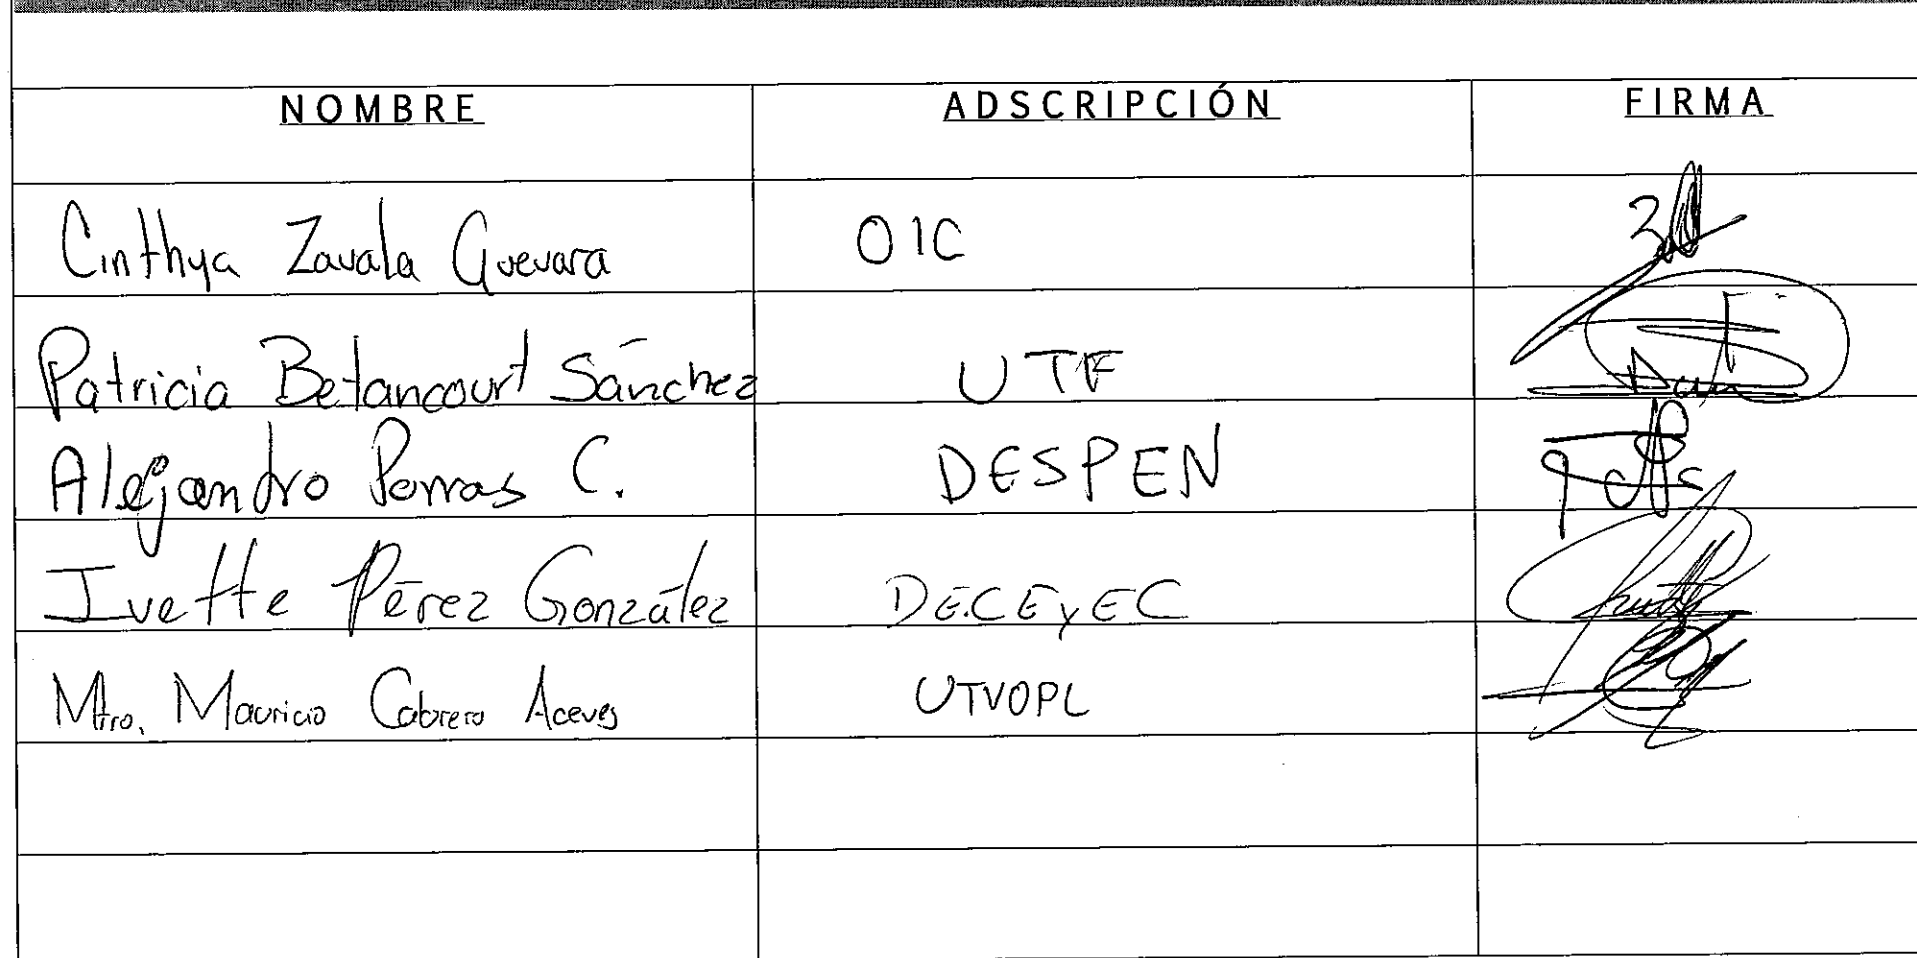 NOMBRE ADSCRIPCIÓN FIRMA
Cinthya Zavala Guevara OIC
Patricia Betancourt Sánchez UTF
Alejandro Porras C. DESPEN
Ivette Pérez González DECEyEC
Mtro. Mauricio Cabrero Aceves UTVOPL